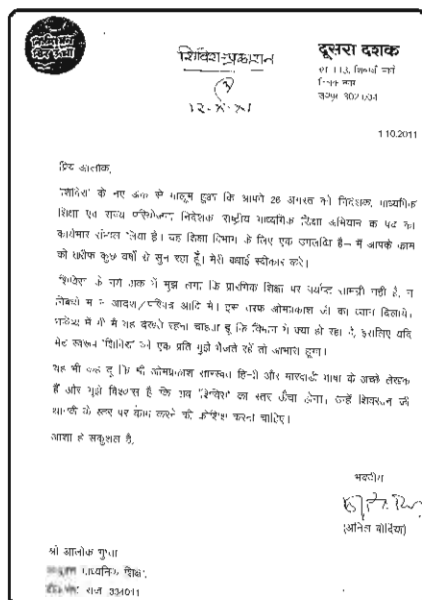 शिविरा-प्रकाशन
दूसरा दशक
1.10.2011
प्रिय आलोक,
'शिविरा' के नए अंक से मालूम हुआ कि आपने 26 अगस्त को निदेशक, माध्यमिक
शिक्षा एवं राज्य परियोजना निदेशक राष्ट्रीय माध्यमिक शिक्षा अभियान के पद का
कार्यभार संभाल लिया है। यह शिक्षा विभाग के लिए एक उपलब्धि है – मैं आपके काम
की तारीफ कुछ वर्षों से सुन रहा हूँ। मेरी बधाई स्वीकार करें।
'शिविरा' के नये अंक में मुझे लगा कि प्रारंभिक शिक्षा पर पर्याप्त सामग्री नहीं है, न
आदेश/परिपत्र आदि में। इस तरफ ओमप्रकाश जी का ध्यान दिलायें।
में भी मैं यह देखते रहना चाहता हूँ कि विभाग में क्या हो रहा है, इसलिए यदि
'शिविरा' की एक प्रति मुझे भेजते रहें तो आभारी हूंगा।
यह भी कह दूं कि श्री ओमप्रकाश सारस्वत हिन्दी और मारवाड़ी भाषा के अच्छे लेखक
हैं और मुझे विश्वास है कि अब 'शिविरा' का स्तर ऊँचा होगा। उन्हें शिवरतन जी
थानवी के स्तर पर काम करने की कोशिश करना चाहिए।
आशा है सकुशल हैं,
भवदीय
(अनिल बोर्दिया)
श्री आलोक गुप्ता
माध्यमिक शिक्षा,
राज 334011